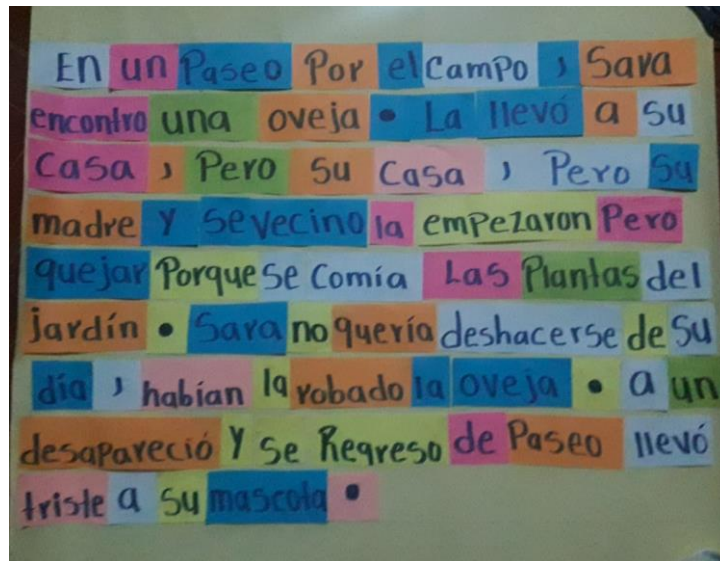 En un Paseo Por el campo , Sara
encontro una oveja . La llevó a su
Casa , Pero su Casa , Pero su
madre y se vecino la empezaron Pero
quejar Porque se Comía Las Plantas del
jardín . Sara no quería deshacerse de su
día , habían la robado la oveja . a un
desapareció y se Regreso de Paseo llevó
triste a su mascota .